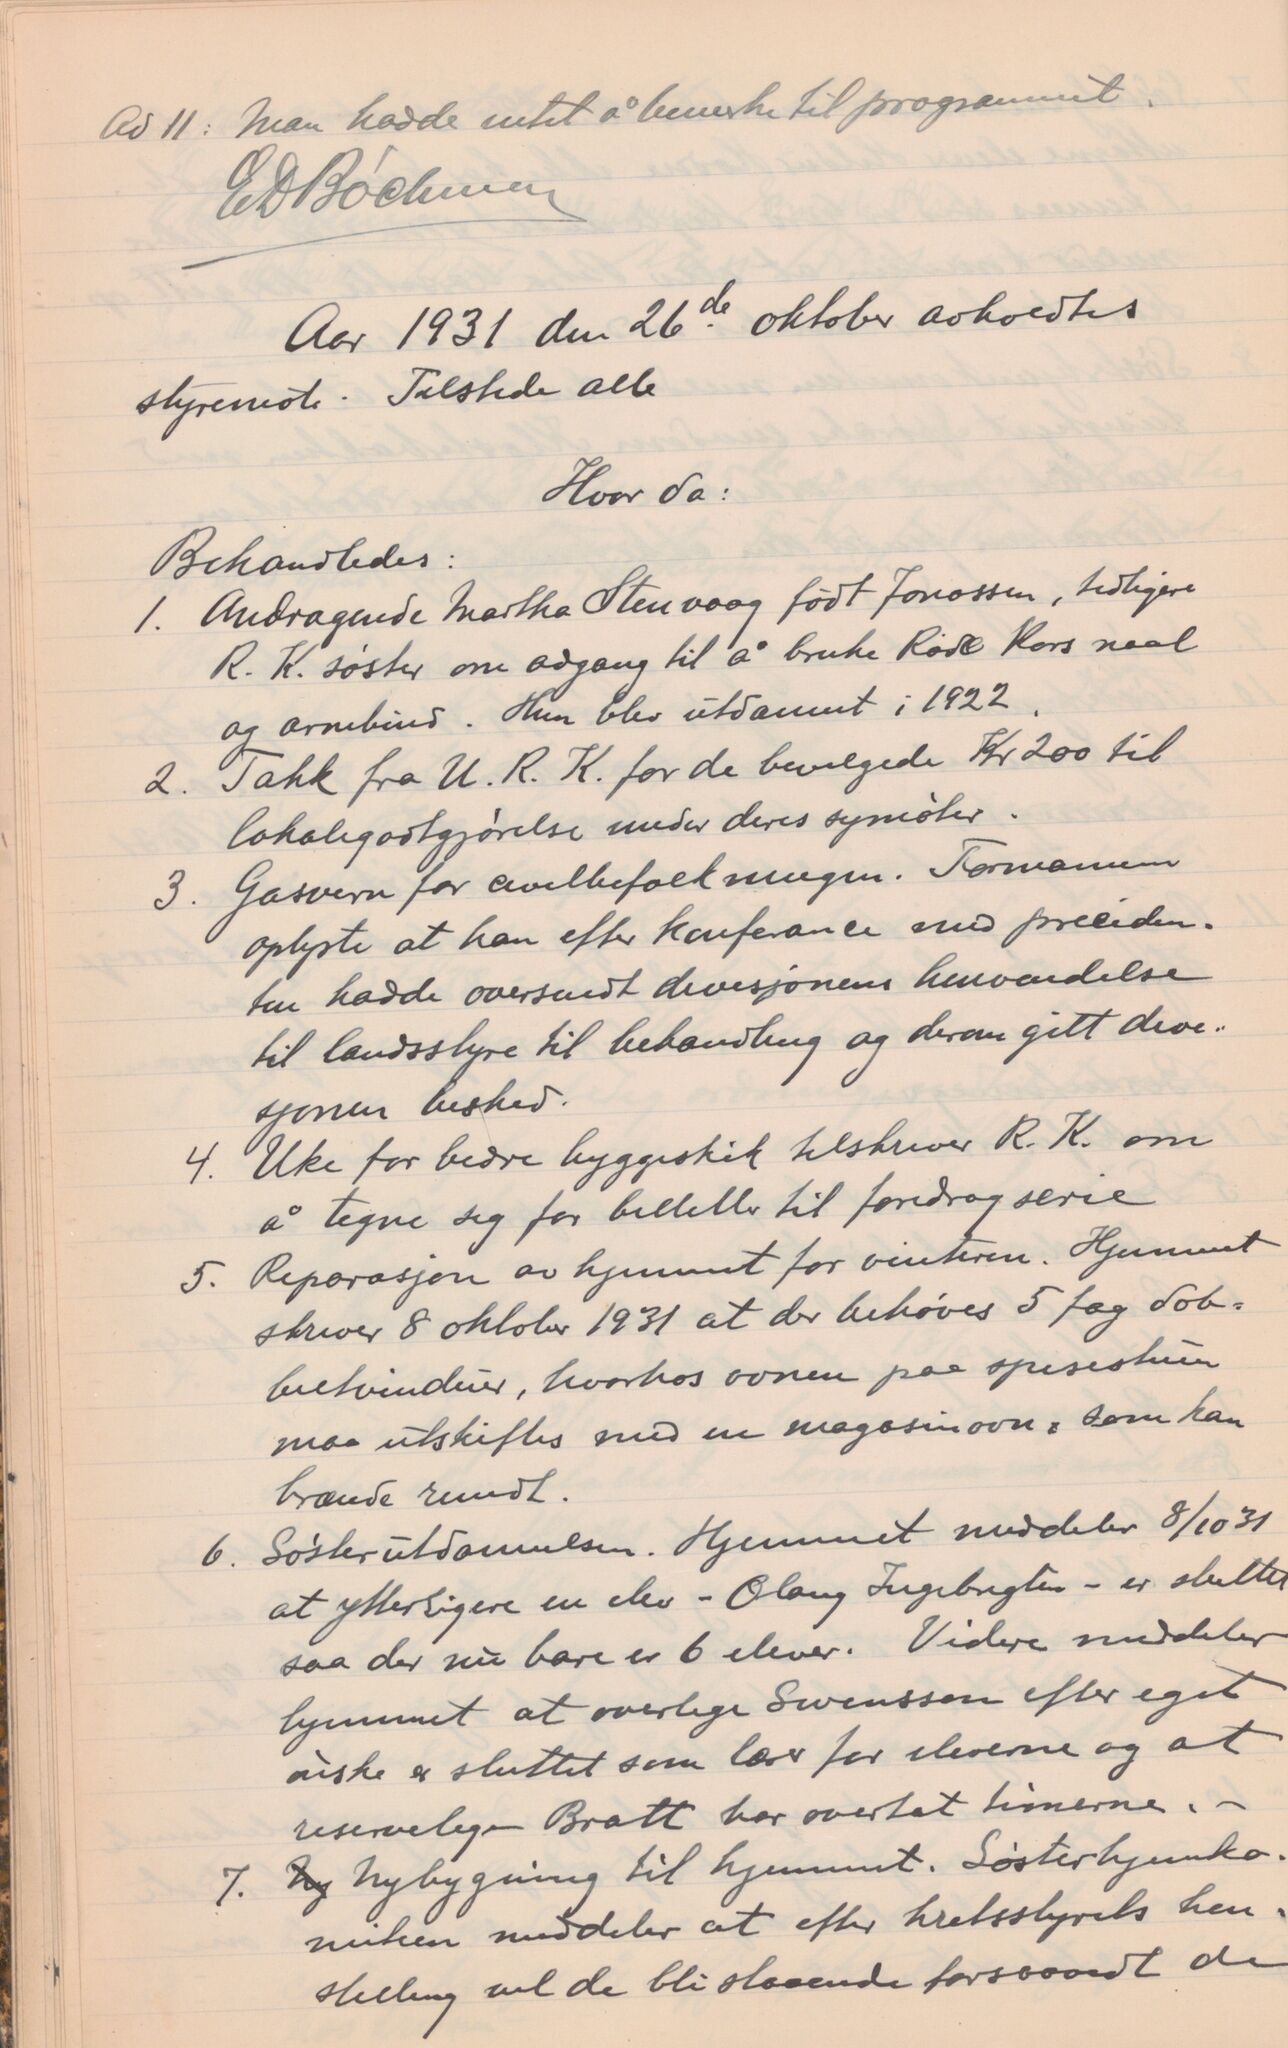 Ad 11: Man hadde intet å bemerke til programmet.
E D Bøchman
Aar 1931 den 26de oktober avholdtes
styremöte. Tilstede alle
Hvor da:
Behandledes:
1. Andragende Martha Stenvaag født Jonassen, tidligere
R. K. søster om adgang til å bruke Røde Kors naal
og armbind. Hun blev utdannet i 1922.
2. Takk fra U. R. K. for de bevilgede Kr 200 til
lokalegodtgjørelse under deres symöter.
3. Gasvern for civilbefolkningen. Formannen
oplyste at han efter konferance med preciden-
ten hadde oversendt divisjonens henvendelse
til landsstyre til behandling og derom gitt divi-
sjonen besked.
4. Uke for bedre byggeskik tilskriver R. K. om
å tegne sig for billetter til foredrag serie
5. Reparasjon av hjemmet for vinteren. Hjemmet
skriver 8 oktober 1931 at der behöves 5 fag dob-
beltvinduer, hvorhos ovnen paa spisestuen
maa utskiftes med en magasinovn, som kan
brænde rundt.
6. Søsterutdannelsen. Hjemmet meddeler 8/10 31
at ytterligere en elev - Olaug Ingebrigtsen - er sluttet
saa der nu bare er 6 elever. Videre meddeler
hjemmet at overlege Swensson efter eget
ønske er sluttet som lærer for eleverne og at
reservelege Bratt har overtat timerne. -
7. Ny Nybygning til hjemmet. Søsterhjemko-
miteen meddeler at efter kretsstyrets hen-
stilling vil de bli staaende forsaavidt de